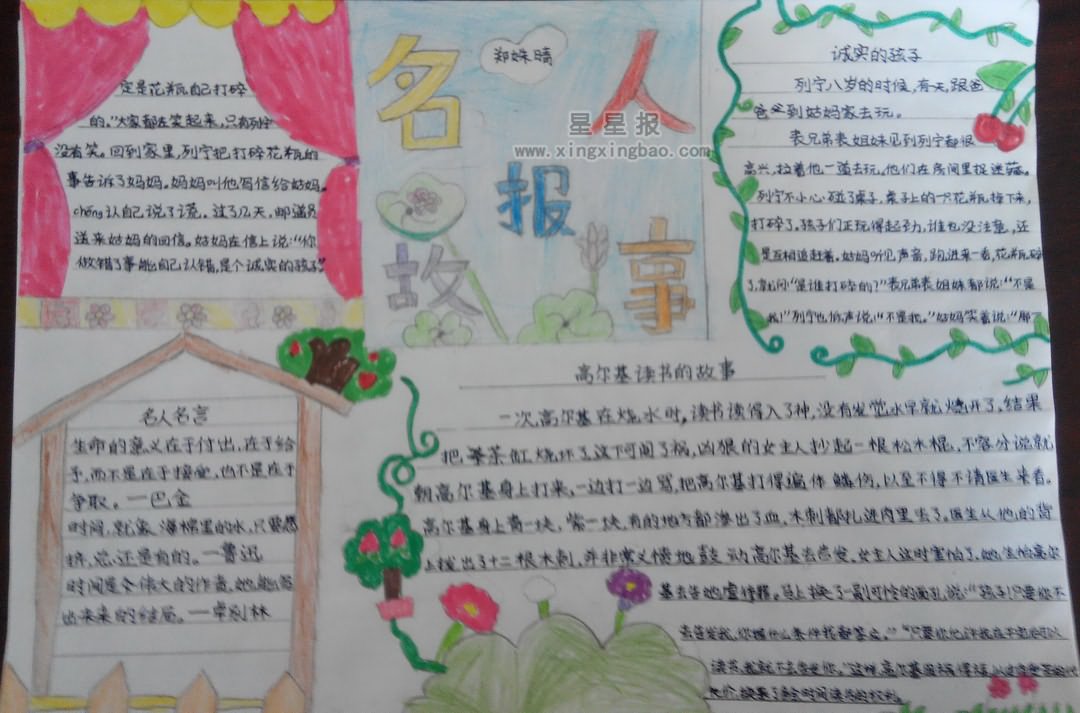 名人故事报
郑姝晴
星星报
www.xingxingbao.com
诚实的孩子
列宁八岁的时候,有天,跟爸
爸到姑妈家去玩。
表兄弟表姐妹见到列宁都很
高兴,拉着他一道去玩。他们在房间里捉迷藏。
列宁不小心碰了桌子,桌子上的一只花瓶掉下来,
打碎了。孩子们正玩得起劲,谁也没注意,还
是互相追赶着。姑妈听见声音,跑进来一看,花瓶碎
了,就问“是谁打碎的?”表兄弟表姐妹都说:“不是
我!”列宁也低声说:“不是我。”姑妈笑着说:“那
定是花瓶自己打碎
的。”大家都在笑起来,只有列宁
没有笑。回到家里,列宁把打碎花瓶的
事告诉了妈妈。妈妈叫他写信给姑妈。
chéng认自己说了谎。过了几天,邮递员
送来姑妈的回信。姑妈在信上说:“你
做错了事能自己认错,是个诚实的孩子。”
名人名言
生命的意义在于付出,在于给
予,而不是在于接受,也不是在于
争取。—巴金
时间,就象海棉里的水,只要愿
挤,总还是有的。—鲁迅
时间是个伟大的作者,她能写
出未来的结局。—卓别林
高尔基读书的故事
一次,高尔基在烧水时,读书读得入了神,没有发觉水早就烧开了,结果
把茶缸烧坏了,这下可闯了祸,凶狠的女主人抄起一根松木棍,不容分说就
朝高尔基身上打来,一边打一边骂,把高尔基打得遍体鳞伤,以至不得不请医生来看。
高尔基身上青一块,紫一块,有的地方都渗出了血,木刺都扎进肉里去了。医生从他的背
上拔出了十二根木刺,并非常义愤地鼓动高尔基去告发,女主人这时害怕了,她生怕高尔
基去告她虐待罪。马上换了一副可怜的面孔说:“孩子!只要你不
去告发我,你提什么条件我都答应。”“只要你允许我在干完活可以
读书,我就不去告你。”这样,高尔基
代价,换来了业余时间读书的权利。